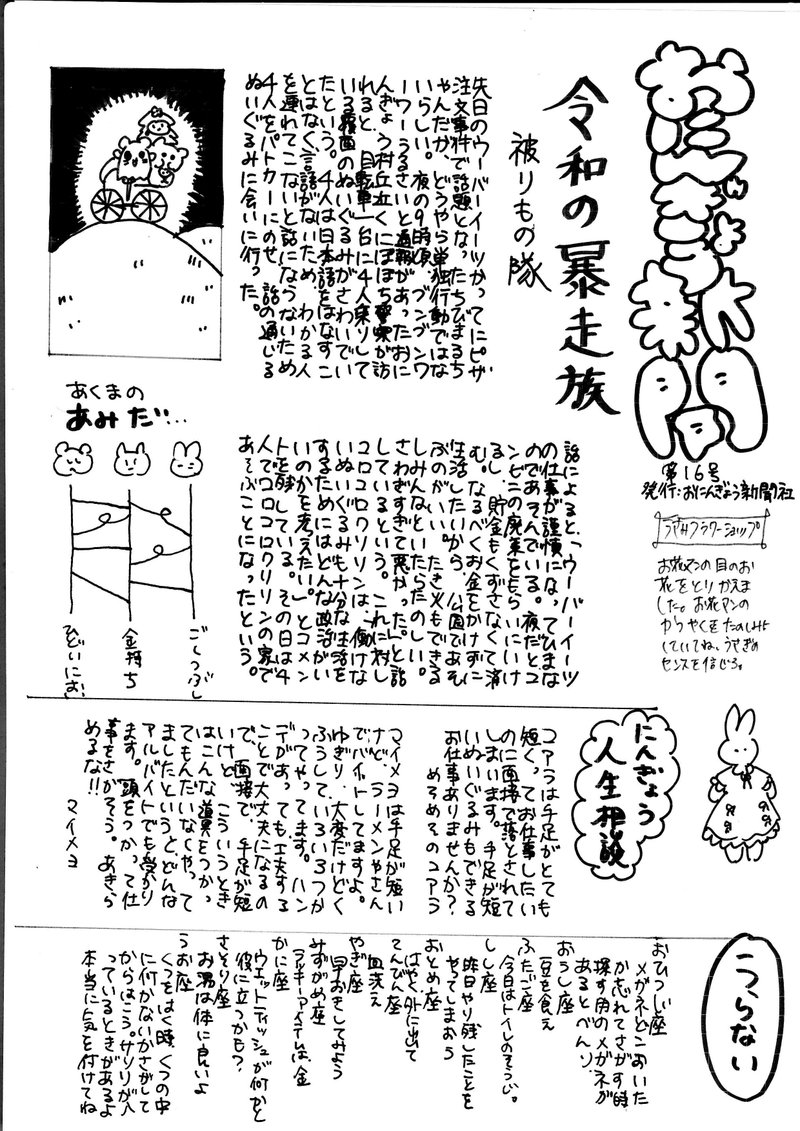 第16号
発行:おにんぎょう新聞社
うさ耳フラワーショップ
お花マンの目のお
花をとりかえま
した。お花マンの
かつやくをたのしみに
していてね。うさぎの
センスを信じろ。
令和の暴走族
被りもの隊
先日のウーバーイーツかってにピザ
注文事件で話題となったちびまるち
ゃんだが、どうやら単独行動ではな
いらしい。夜の9時頃、ブンブンワ
ーワーうるさいと通報があったおに
んぎょう村丘近くにぽぽち警察が訪
れると、自転車一台に4人乗りして
いる覆面のぬいぐるみがさわいでい
たという。4人は日本語をはなすこ
とはなく、言語がないため、わかる人
を連れてこないと話にならないため
4人をパトカーにのせ、話の通じる
ぬいぐるみに会いに行った。
話によると、「ウーバーイーツ
の仕事が謹慎になってひまな
のであそんでいる。夜だとコ
ンビニの廃棄をもらいにいけ
るし、貯金もくずさなくて済
む。なるべくお金をかけずに
生活したいから、公園であそ
ぶのがいい。たき火もできる
しみんなといたらたのしい。
さわぎすぎて悪かった。」と話
しているという。これに対し
コロコロクリリンは、「働けな
いぬいぐるみも十分な生活を
するためにはどんな政治がい
いのかを考えたい。」とコメン
トを残している。その日は4
人でコロコロクリリンの家で
あそぶことになったという。
あくまの
あみだ…
ごくつぶし
金持ち
ひどいにお
にんぎょう
人生相談
コアラは手足がとても
短くってお仕事したい
のに面接で落とされて
しまいます。手足が短
いぬいぐるみもできる
お仕事ありませんか?
めそめそのコアラ
マイメヨは手足が短い
けど、ラーメンやさん
でバイトしてますよ。
ゆぎり、大変だけどく
ふうして、いろいろつか
ってやってます。ハン
デがあっても工夫する
ことで大丈夫になるの
で、面接で、手足が短
いけど、こういうとき
はこんな道具をつかっ
てもんだいなくやって
ましたというと、どんな
アルバイトでも受かり
ます。頭をつかって仕
事をさがそう。あきら
めるな!!
マイメヨ
うらない
おひつじ座
メガネどこおいた
か忘れてさがす時
探す用のメガネが
あるとべんり。
おうし座
豆を食え
ふたご座
今日はトイレのそうじ。
しし座
昨日やり残したことを
やってしまおう
おとめ座
はやく外に出て
てんびん座
皿洗え
やぎ座
早おきしてみよう
みずがめ座
ラッキーアイテムは金
かに座
ウエットティッシュが何かと
役に立つかも?
さそり座
お湯は体に良いよ
うお座
くつをはく時、くつの中
に何かないかさがして
からはこう。サソリが入
っているときがあるよ
本当に気を付けてね